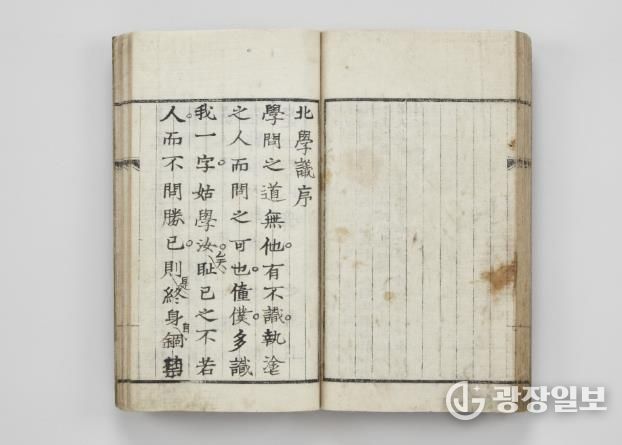 北學議序
學問之道無他。有不識。執塗
之人而問之可也。僮僕。多識
我一字。姑學汝。恥已之不若
人。而不問勝已。則是終身自錮
광장일보